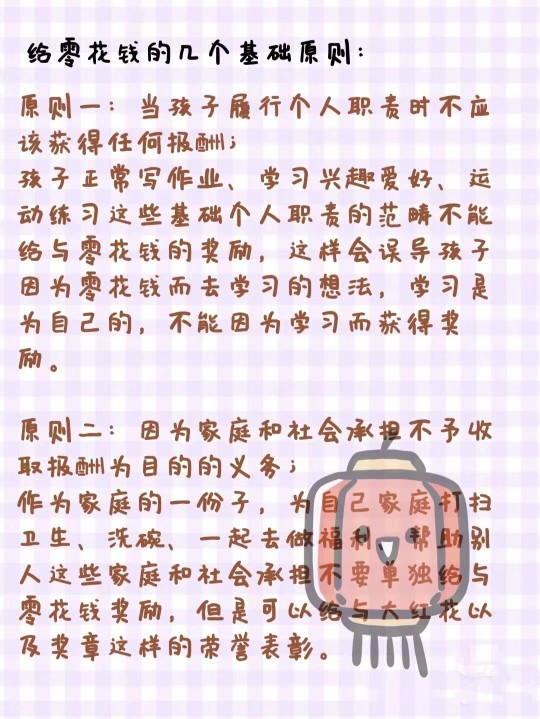 给零花钱的几个基础原则：
原则一：当孩子履行个人职责时不应
该获得任何报酬；
孩子正常写作业、学习兴趣爱好、运
动练习这些基础个人职责的范畴不能
给与零花钱的奖励，这样会误导孩子
因为零花钱而去学习的想法，学习是
为自己的，不能因为学习而获得奖
励。
原则二：因为家庭和社会承担不予收
取报酬为目的的义务；
作为家庭的一份子，为自己家庭打扫
卫生、洗碗、一起去做福利、帮助别
人这些家庭和社会承担不要单独给与
零花钱奖励，但是可以给与大红花以
及奖章这样的荣誉表彰。